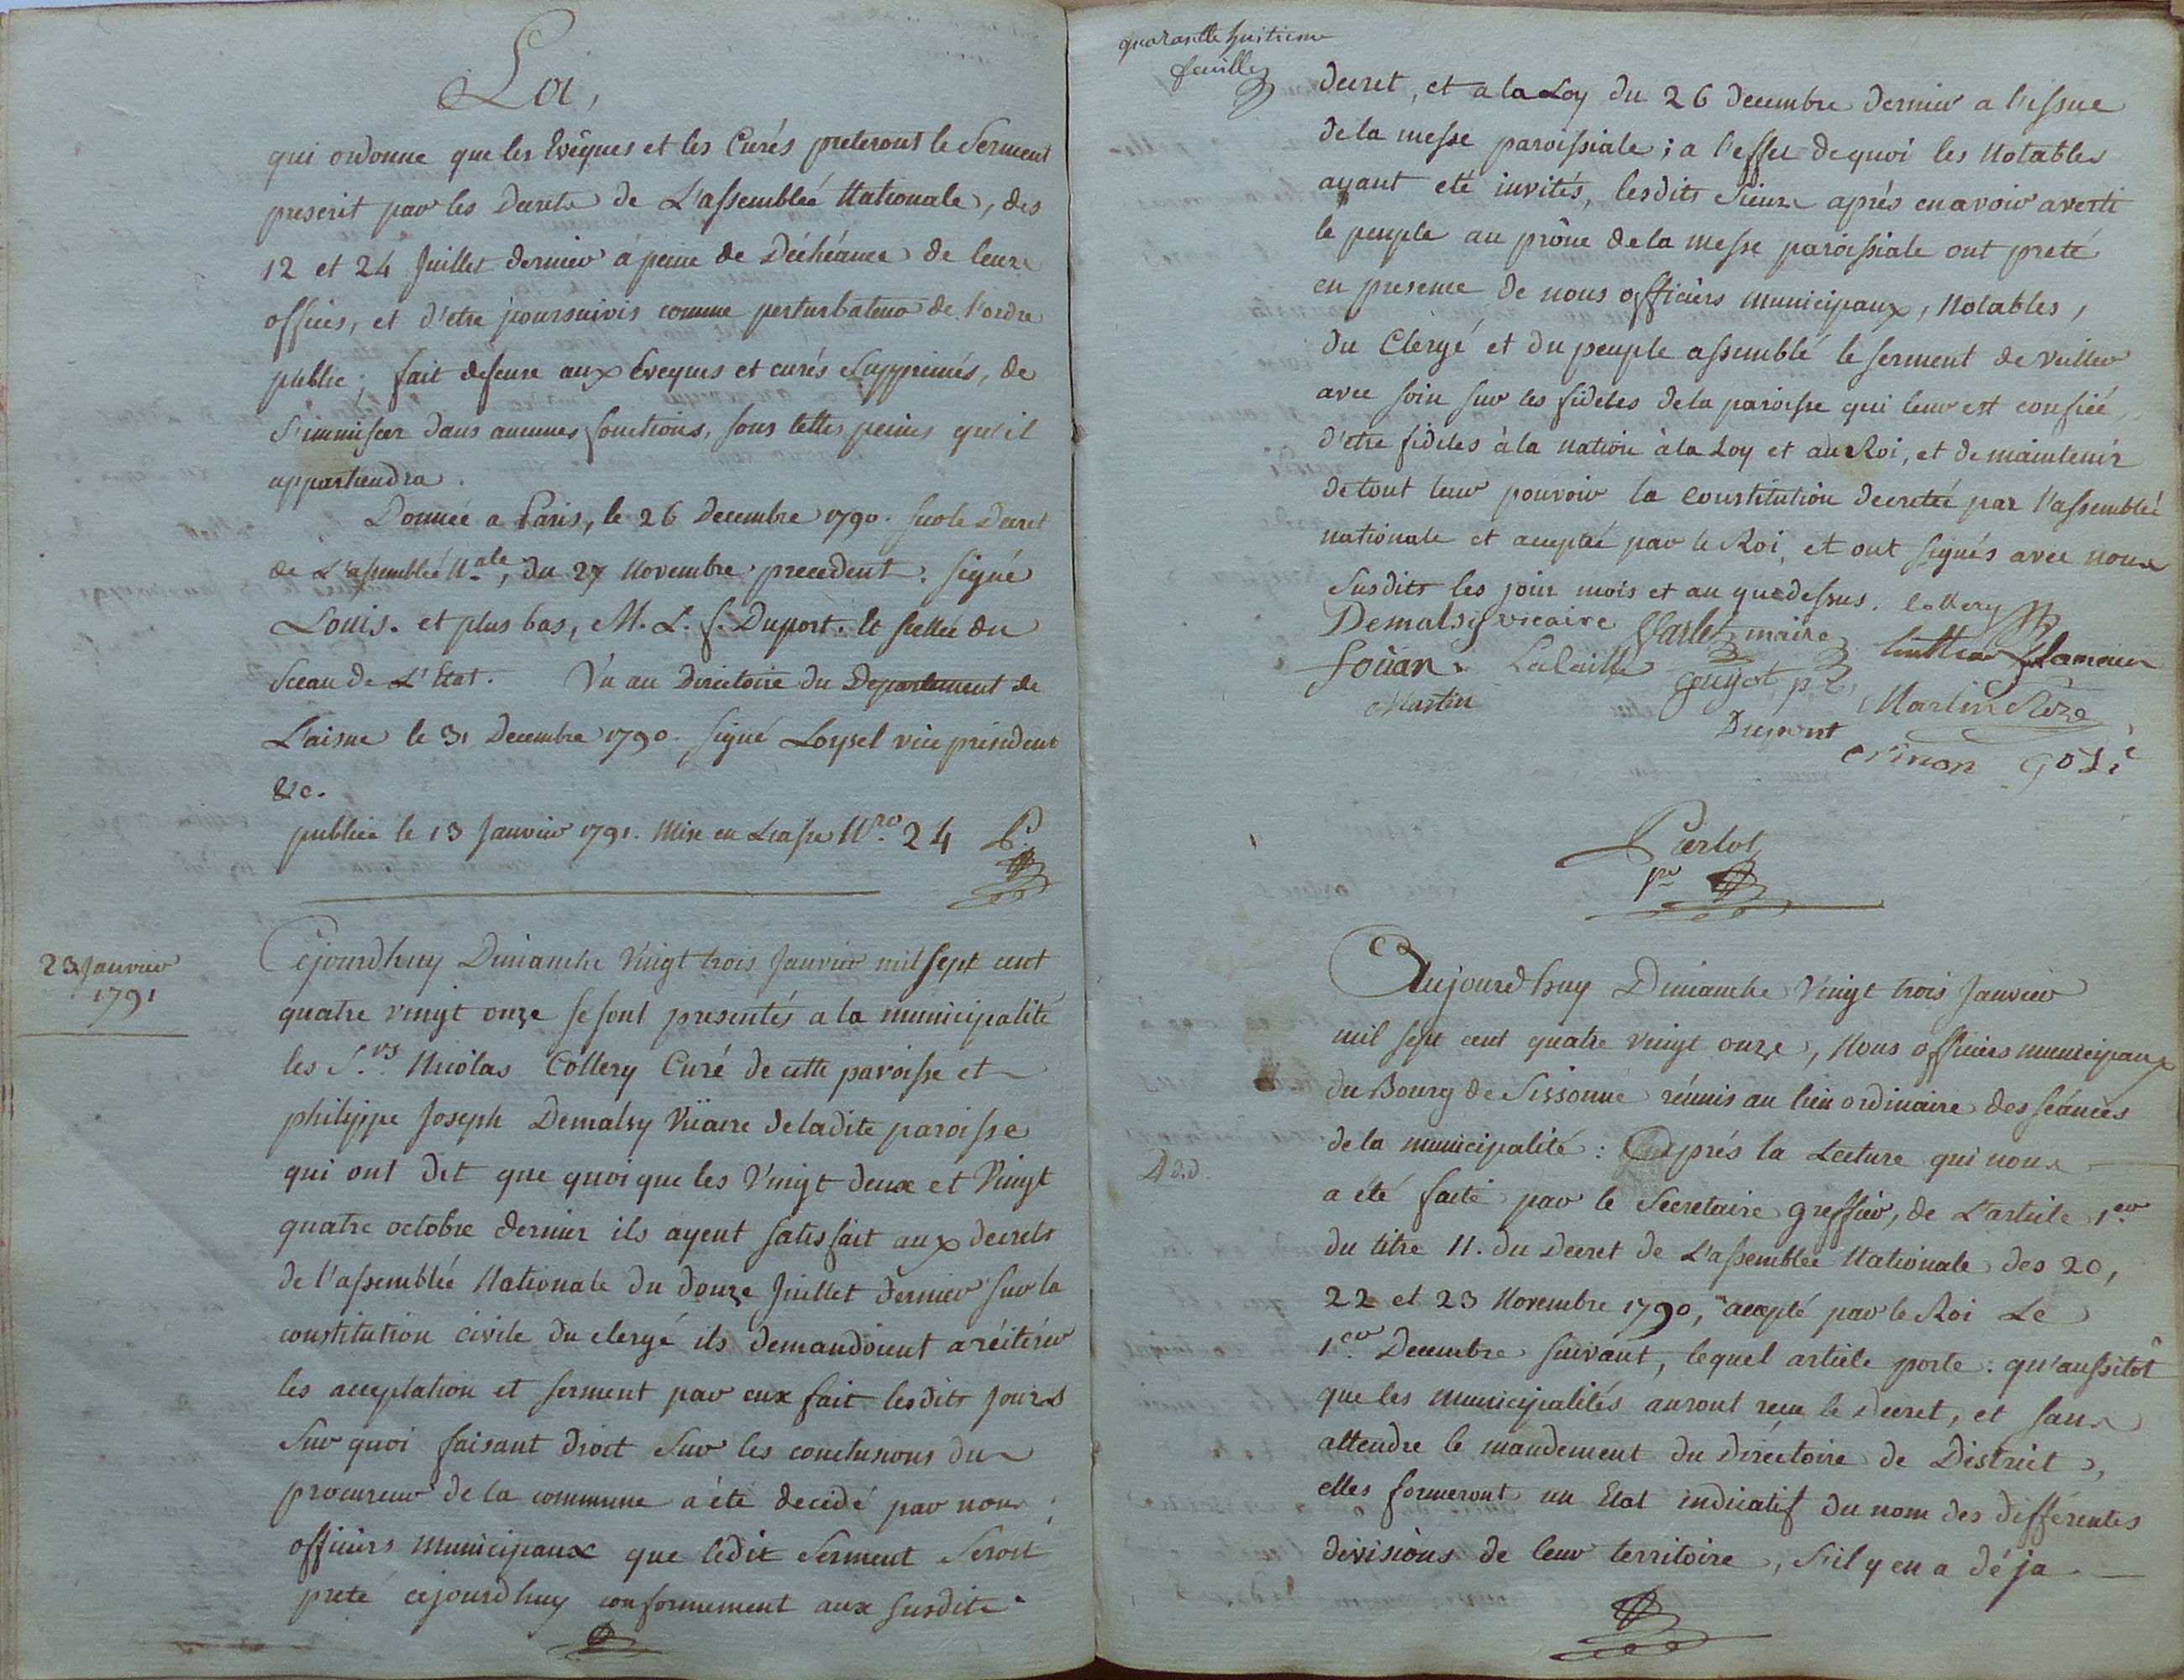 La,
qui ordonne que les Evêques et les Curés preteront le Serment
prescrit par les Decrets de L'assembleé Nationale, des
12 et 24 Juillet dernier á peine de Déchéance de leurs
offices, et d'etre poursuivis comme perturbateurs de l'ordre
public; fait defense aux Eveques et curés Supprimés, de
S'immiscer dans aucunes fonctions, sous telles peines qu'il
appartiendra.
Donneé a Paris, le 26 Decembre 1790. sur le Decret
de L'assembleé N.ale, du 27 Novembre precedent: signé
Louis. et plus bas, M. L. f. Duport. et scelleé du
Sceau de L'Etat. Vu au Directoire du Departement de
L'aisne le 31 Decembre 1790. signé Loysel vice president
&c.
publieé le 13 Janvier 1791. Mise en Liasse N.ro 24 P.
23 Janvier
1791
Cejourdhuy Dimanche Vingt trois Janvier mil sept cent
quatre vingt onze se sont presentés a la municipalité
les S.rs Nicolas Collery Curé de cette paroisse et
philippe Joseph Demalsy Vicaire de ladite paroisse
qui ont dit que quoique les Vingt deux et Vingt
quatre octobre dernier ils ayent satisfait aux decrets
de l'assembleé Nationale du douze Juillet dernier sur la
constitution civile du clergé ils demandoient a réitérer
les acceptation et serment par eux fait lesdits Jours
Sur quoi faisant droit Sur les conclusions du
procureur de la commune a été decidé par nous
officiers municipaux que ledit Serment Seroit
preté cejourdhuy conformement aux susdits
quarante huitieme
feuille
decret, et a la Loy du 26 decembre dernier a l'issue
de la messe paroissiale; a l'effet de quoi les Notables
ayant eté invités, lesdits Sieurs aprés en avoir averti
le peuple au prône de la messe paroissiale ont preté
en presence de nous officiers municipaux, Notables,
du Clergé et du peuple assemblé le serment de veiller
avec soin sur les fideles de la paroisse qui leur est confiée,
d'etre fideles à la nation à la Loy et au Roi, et de maintenir
de tout leur pouvoir la constitution decretée par l'assembleé
nationale et acceptée par le Roi, et ont signés avec nous
susdits les jour mois et an que dessus. Collery
Demalsy vicaire Varlet maire
foüan Lalaille guyot
Martin Martin
Dumont
Ninon
Perlot
Aujourdhuy Dimanche Vingt trois Janvier
mil sept cent quatre vingt onze, Nous officiers municipaux
du Bourg de Sissonne réunis au lieu ordinaire des séances
de la municipalité: Aprés la Lecture qui nous
a été faite par le Secretaire greffier, de L'article 1.er
du titre 11. du Decret de L'assembleé Nationale des 20,
22 et 23 Novembre 1790, accepté par le Roi Le
1.er Decembre suivant, lequel article porte: qu'aussitôt
que les municipalités auront reçu le Decret, et sans
attendre le mandement du Diréctoire de District,
elles formeront un Etat indicatif du nom des différentes
divisions de leur territoire, s'il y en a déja